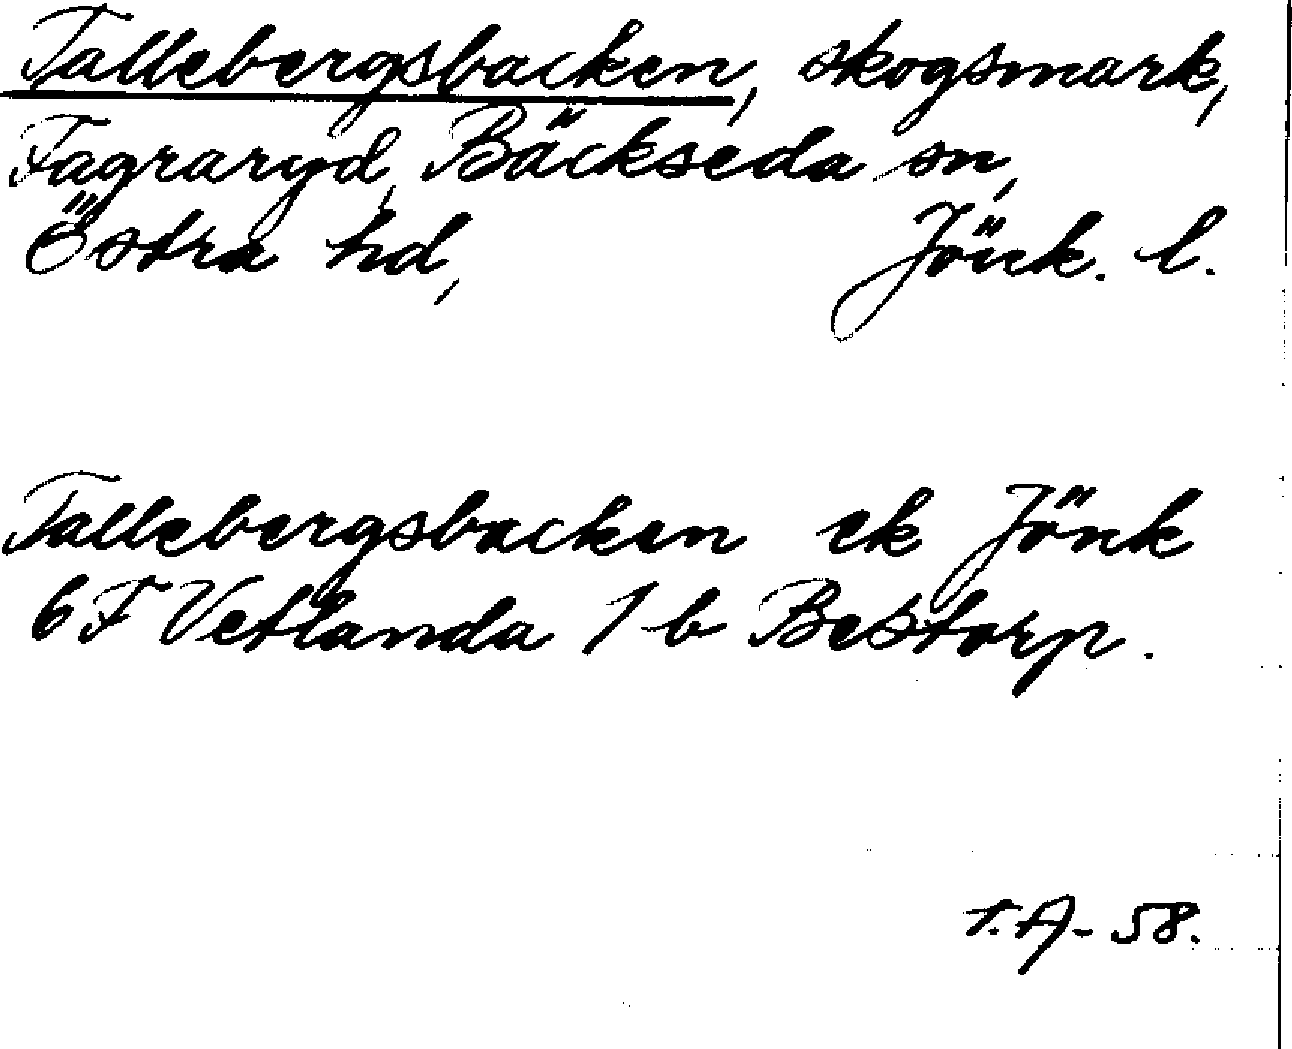 Tallebergsbacken, skogsmark,
Fagraryd, Bäckseda sn,
Östra hd, Jönk. l.
Tallebergsbacken ek Jönk
6F Vetlanda 1 b Bestorp.
T.A- 58.